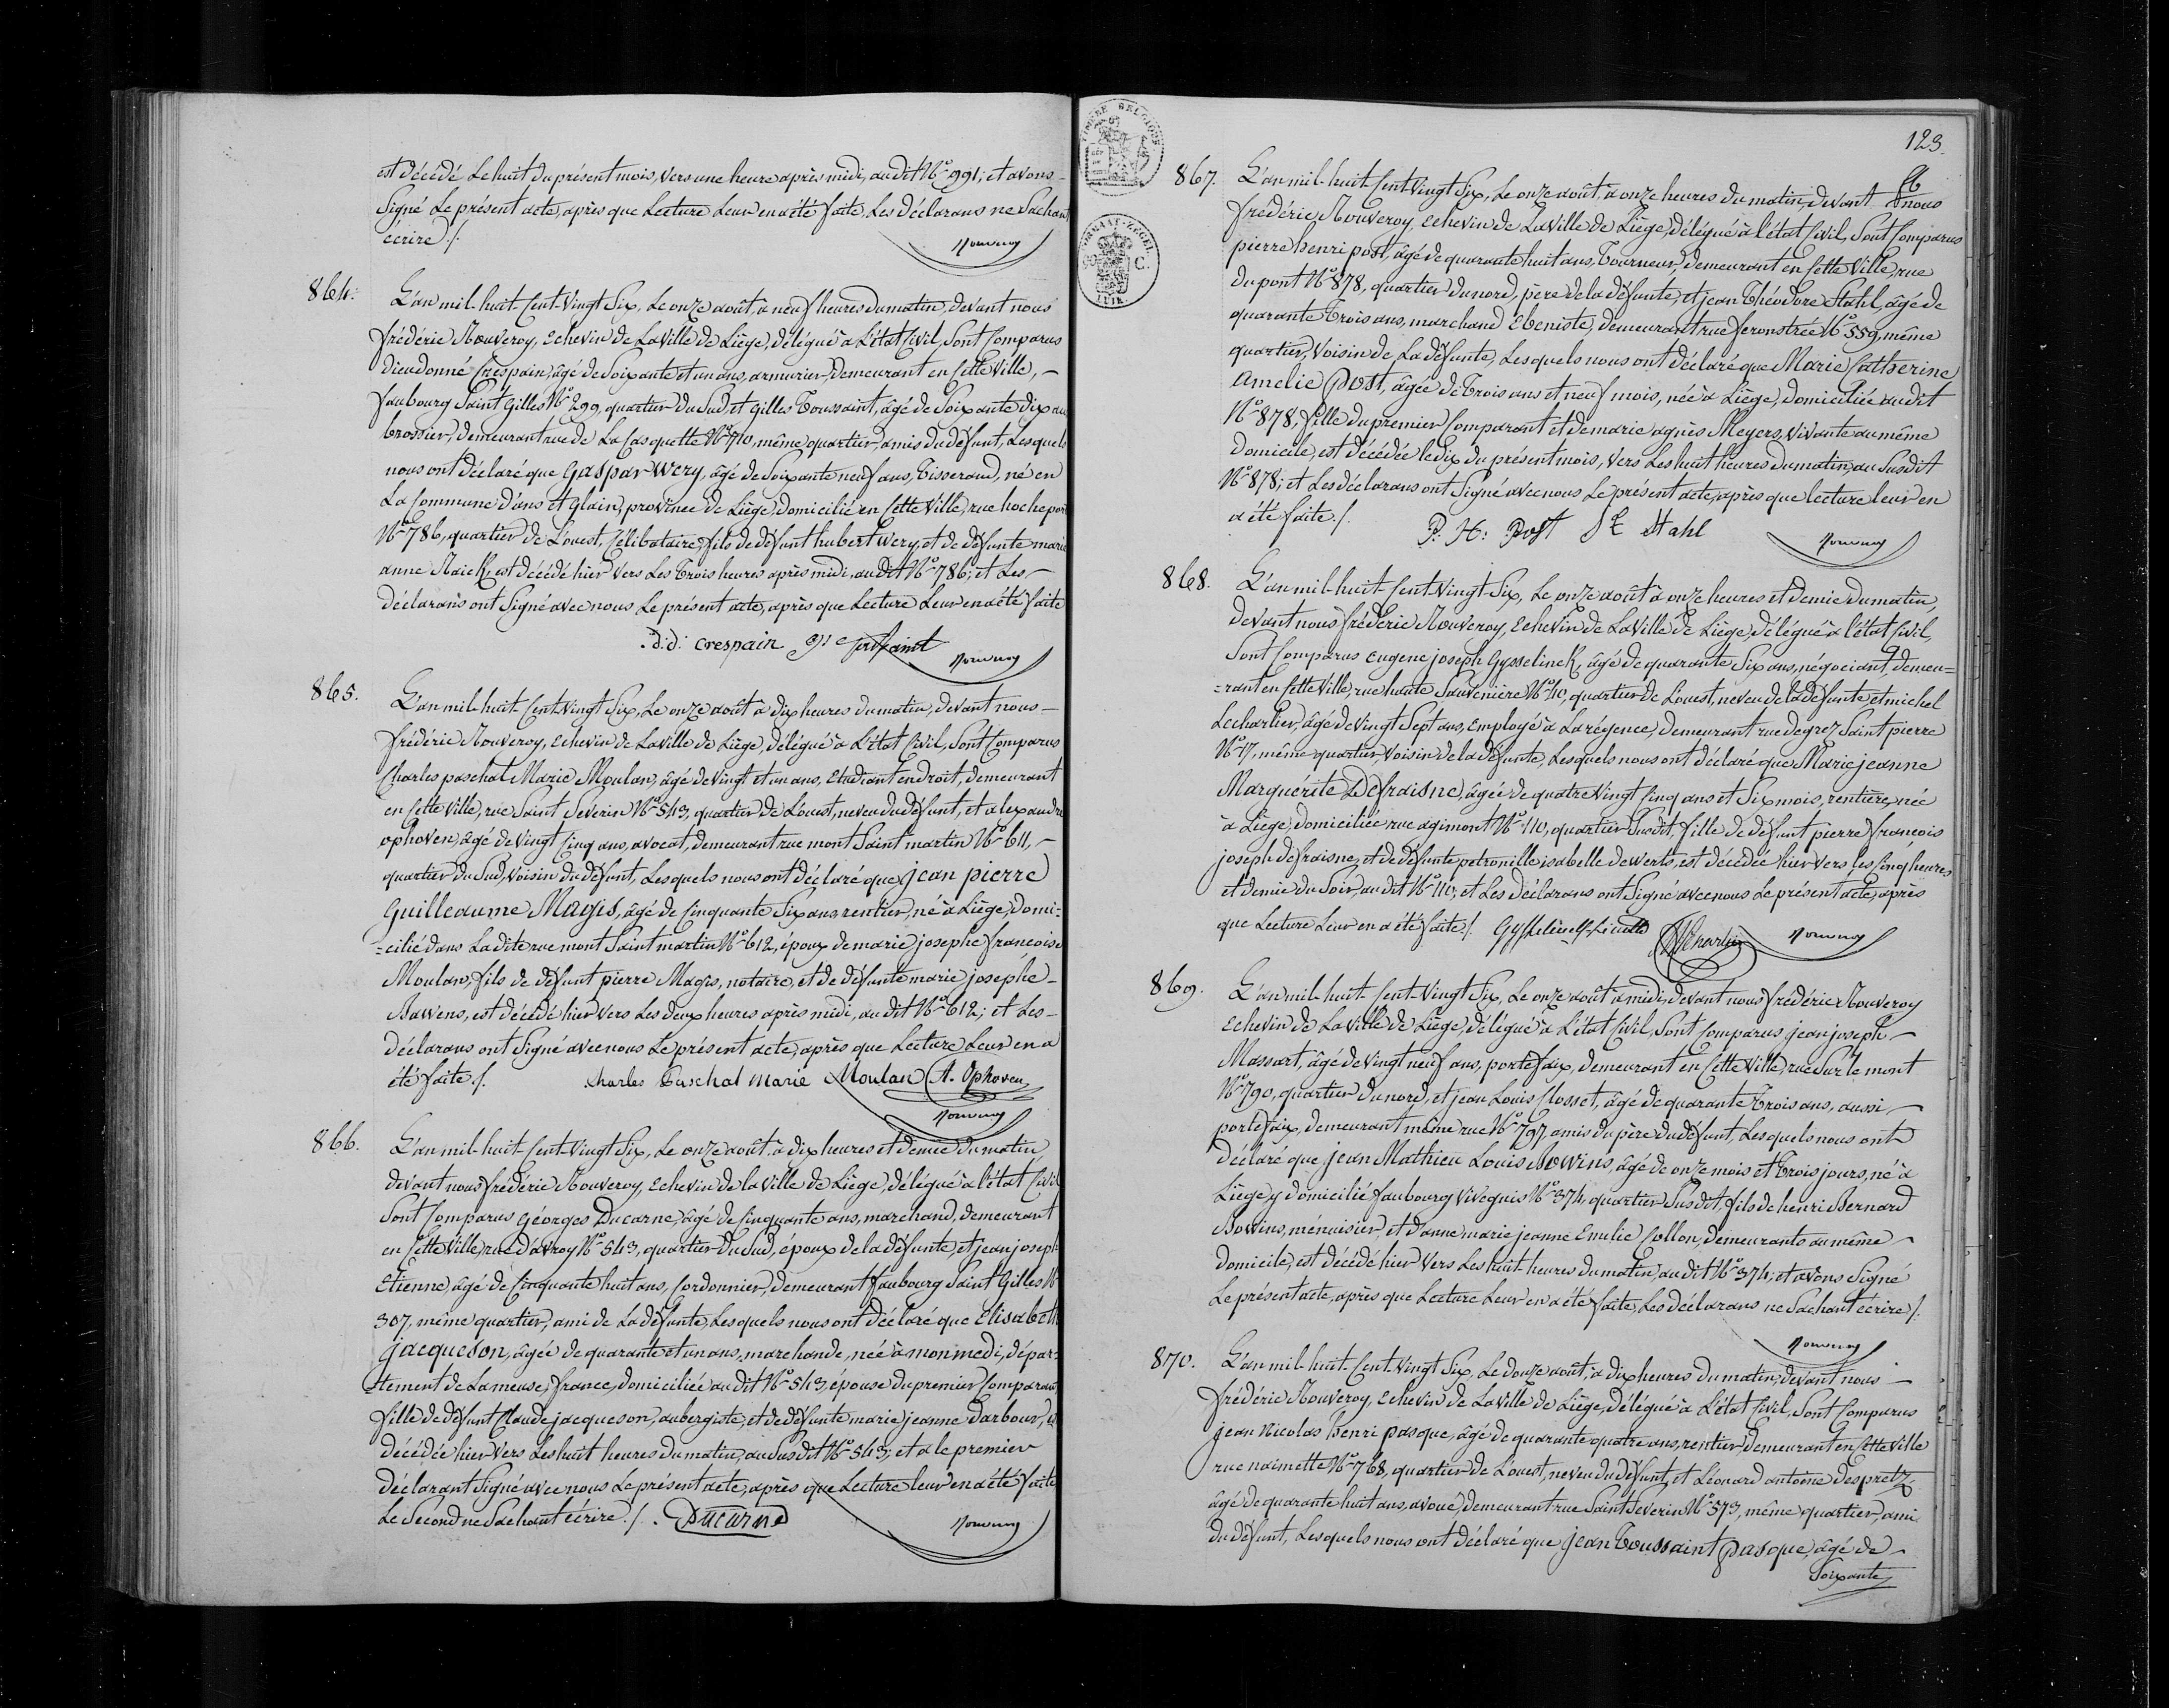 est décédé le huit du présent mois, vers une heure après midi, au dit N° 991; et avons
signé le présent acte, après que lecture leur en a été faite, les déclarans ne sachant
écrire ./.
Rouveroy
864.
L'an mil-huit-cent-vingt-six, le onze août à neuf heures du matin, devant nous
frédéric Rouveroy, Echevin de la ville de Liège, délégué à l'état civil, sont comparus
dieudonné Crespain, âgé de soixante et un ans, armurier, demeurant en cette ville,
faubourg saint Gilles N° 299, quartier du sud, et Gilles Toussaint, âgé de soixante dix ans
brossier, demeurant rue de la Casquette N° 710, même quartier, amis du défunt, lesquels
nous ont déclaré que Gaspar Wery, âgé de soixante neuf ans, tisserand, né en
la commune d'ans et Glain, province de Liège, domicilié en cette ville, rue hocheport
N° 786, quartier de l'ouest, célibataire, fils de défunt hubert Wery, et de défunte marie
anne Raick, est décédé hier vers les trois heures après midi, au dit N° 786; et les
déclarans ont signé avec nous le présent acte, après que lecture leur en a été faite
d:d: crespain Toussaint
Rouveroy
865.
L'an mil-huit-cent-vingt six, le onze août à dix heures du matin, devant nous
frédéric Rouveroy, Echevin de la ville de Liège, délégué à l'état civil, sont comparus
Charles paschal Marie Moulan, âgé de vingt et un ans, étudiant en droit, demeurant
en cette ville, rue saint Severin N° 543, quartier de l'ouest, neveu du défunt, et alexandre
ophoven, âgé de vingt cinq ans, avocat, demeurant rue mont saint martin N° 611,
quartier du sud, voisin du défunt, lesquels nous ont déclaré que jean pierre
Guilleaume Magis, âgé de cinquante six ans, rentier, né à Liège, domi-
-cilié dans la dite rue mont saint martin N° 612, époux de marie josephe françoise
Moulan, fils de défunt pierre Magis, notaire, et de défunte marie josephe
Bawens, est décédé hier vers les deux heures après midi, au dit N° 612; et les
déclarans ont signé avec nous le présent acte, après que lecture leur en a
été faite ./. Charles Paschal Marie Moulan A. Ophoven
Rouveroy
866.
L'an mil-huit-cent-vingt six, le onze août, à dix heures et demie du matin,
devant nous frédéric Rouveroy, Echevin de la ville de Liège, délégué à l'état civil
sont comparus Géorges Ducarne, âgé de cinquante ans, marchand, demeurant
en cette ville, rue d'avroy N° 543, quartier du sud, époux de la défunte, et jean joseph
Etienne, âgé de cinquante huit ans, cordonnier, demeurant faubourg saint Gilles N°
307, même quartier, ami de la défunte, lesquels nous ont déclaré que Elisabeth
jacqueson, âgée de quarante et un ans, marchande, née à monmedi, dépar-
-tement de la meuse, france, domiciliée au dit N° 543, épouse du premier comparant
fille de défunt Claude jacqueson, aubergiste, et de défunte marie jeanne Darbour, est
décédée hier vers les huit heures du matin, au susdit N° 543; et a le premier
déclarant signé avec nous le présent acte, après que lecture leur en a été faite
le second ne sachant écrire ./. Ducarne
Rouveroy
123.
867.
L'an mil-huit-cent-vingt six, le onze août, à onze heures du matin, devant nous
frédéric Rouveroy, Echevin de la ville de Liège, délégué à l'état civil, sont comparus
pierre henri post, âgé de quarante huit ans, tourneur, demeurant en cette ville, rue
du pont N° 878, quartier du nord, père de la défunte, et jean théodore Stahl, âgé de
quarante trois ans, marchand Ebeniste, demeurant rue feronstrée N° 559, même
quartier, voisin de la défunte, lesquels nous ont déclaré que Marie Catherine
Amelie Post, âgée de trois ans et neuf mois, née à Liège, domiciliée audit
N° 878, fille du premier comparant et de marie agnès Meyers, vivante au même
domicile, est décédée le dix du présent mois, vers les huit heures du matin, au susdit
N° 878; et les déclarans ont signé avec nous le présent acte, après que lecture leur en
a été faite ./. P: H: Post Stahl
Rouveroy
868.
L'an mil-huit-cent-vingt-six, le onze août à onze heures et demie du matin,
devant nous frédéric Rouveroy, Echevin de la ville de Liège, délégué à l'état civil,
sont comparus Eugene joseph Gysselinck, âgé de quarante six ans, négociant, demeu-
-rant en cette ville, rue haute sauvenière N° 10, quartier de l'ouest, neveu de la défunte, et michel
Lecharlier, âgé de vingt sept ans, Employé à la régence, demeurant rue degrez saint pierre
N° 17, même quartier, voisin de la défunte, lesquels nous ont déclaré que Marie jeanne
Marguérite Defraisne, âgée de quatre vingt cinq ans et six mois, rentière, née
à Liège, domiciliée rue agimont N° 110, quartier susdit, fille de défunt pierre françois
joseph defraisne, et de défunte petronille isabelle dewerts, est décédée hier vers les cinq heures
et demie du soir, au dit N° 110; et les déclarans ont signé avec nous le présent acte, après
que lecture leur en a été faite ./.
Rouveroy
869.
L'an mil-huit-cent-vingt six, le onze août à midi, devant nous frédéric Rouveroy
Echevin de la ville de Liège, délégué à l'état civil, sont comparus jean joseph
Massart, âgé de vingt neuf ans, portefaix, demeurant en cette ville, rue sur le mont
N° 790, quartier du nord, et jean Louis Closset, âgé de quarante trois ans, aussi
portefaix, demeurant même rue N° 797, amis du père du défunt, lesquels nous ont
déclaré que jean Mathieu Louis Bowins, âgé de onze mois et trois jours, né à
Liège, y domicilié faubourg vivegnis N° 374, quartier susdit, fils de henri Bernard
Bowins, ménuisier, et d'anne marie jeanne Emelie Collon, demeurants au même
domicile, est décédé hier vers les huit heures du matin, au dit N° 374; et avons signé
le présent acte, après que lecture leur en a été faite, les déclarans ne sachant écrire ./.
Rouveroy
870.
L'an mil-huit-cent-vingt six, le douze août, à dix heures du matin, devant nous
frédéric Rouveroy, Echevin de la ville de Liège, délégué à l'état civil, sont comparus
jean Nicolas henri pasque, âgé de quarante quatre ans, rentier, demeurant en cette ville
rue naimette N° 768, quartier de l'ouest, neveu du défunt, et Léonard antoine despretz
âgé de quarante huit ans, avoué, demeurant rue saint Severin N° 573, même quartier, ami
du défunt, lesquels nous ont déclaré que jean toussaint pasque, âgé de
soixante